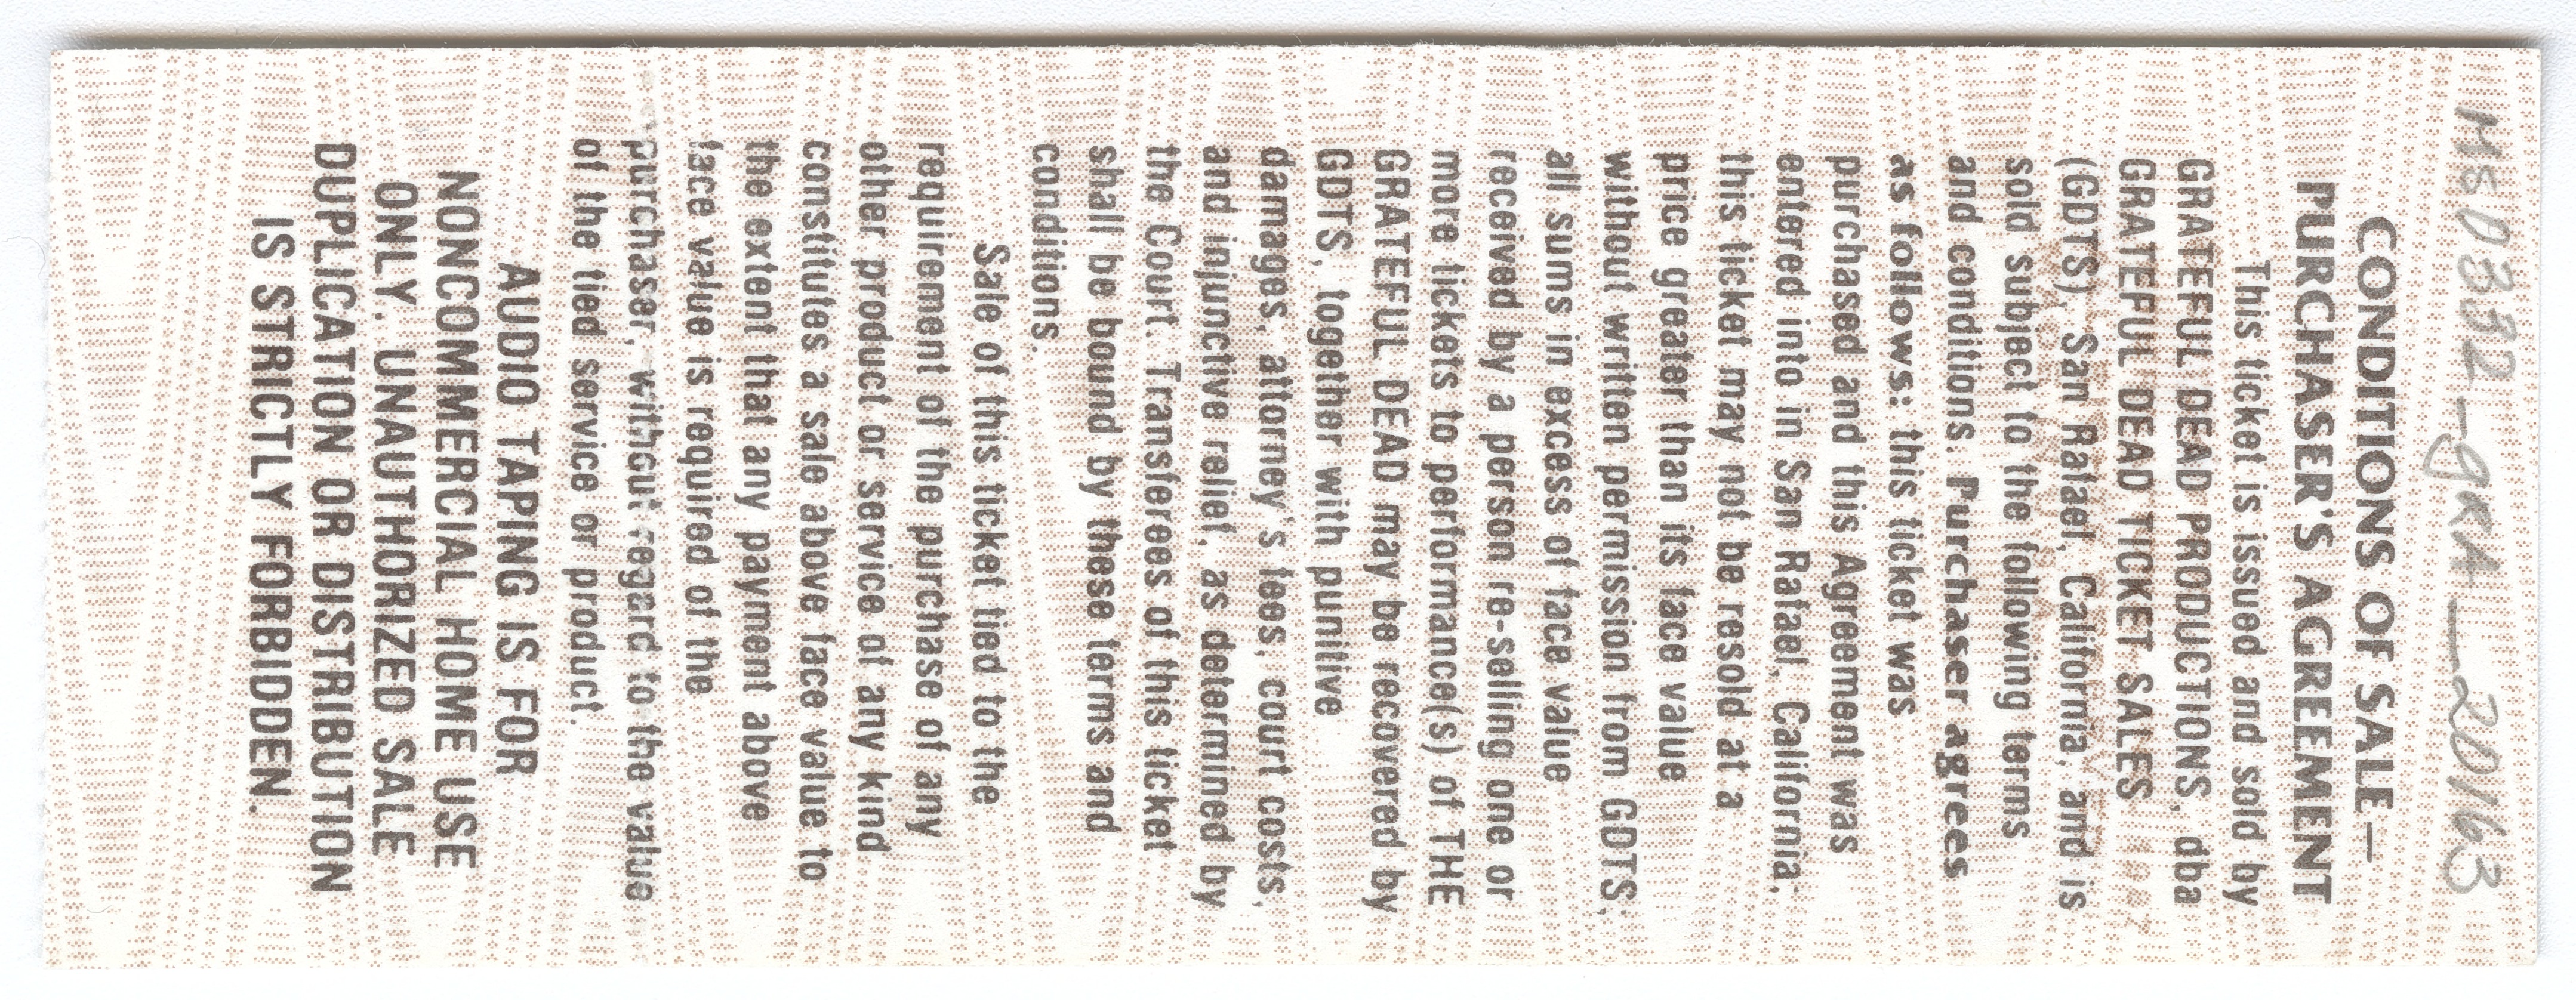 MS0332-gRA__20163
CONDITIONS OF SALE —
PURCHASER'S AGREEMENT
This ticket is issued and sold by
GRATEFUL DEAD PRODUCTIONS, dba
GRATEFUL DEAD TICKET SALES
(GDTS), San Rafael, California, and is
sold subject to the following terms
and conditions. Purchaser agrees
as follows: this ticket was
purchased and this Agreement was
entered into in San Rafael, California;
this ticket may not be resold at a
price greater than its face value
without written permission from GDTS;
all sums in excess of face value
received by a person re-selling one or
more tickets to performance(s) of THE
GRATEFUL DEAD may be recovered by
GDTS, together with punitive
damages, attorney's fees, court costs,
and injunctive relief, as determined by
the Court. Transferees of this ticket
shall be bound by these terms and
conditions.
Sale of this ticket tied to the
requirement of the purchase of any
other product or service of any kind
constitutes a sale above face value to
the extent that any payment above
face value is required of the
purchaser, without regard to the value
of the tied service or product.
AUDIO TAPING IS FOR
NONCOMMERCIAL HOME USE
ONLY. UNAUTHORIZED SALE
DUPLICATION OR DISTRIBUTION
IS STRICTLY FORBIDDEN.